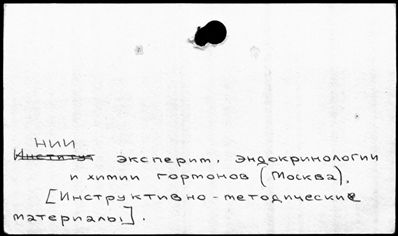 НИИ
Институт эксперим. эндокринологии
и химии гормонов (Москва).
[Инструктивно-методические
материалы].